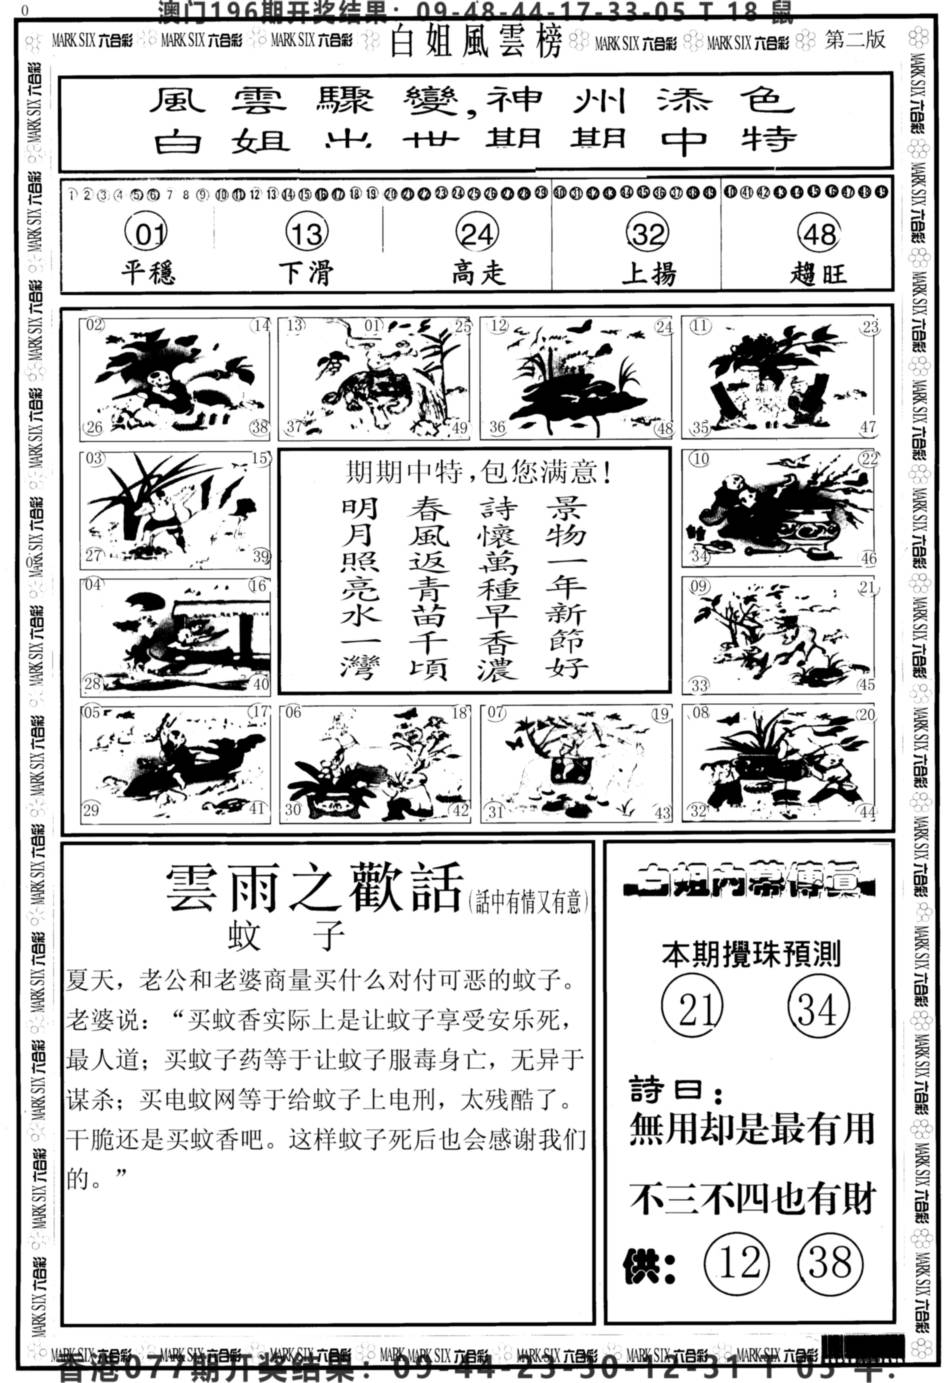 0
澳门196期开奖结果：09-48-44-17-33-05 T 18 鼠
MARK SIX 六合彩 MARK SIX 六合彩 MARK SIX 六合彩 白姐風雲榜 MARK SIX 六合彩 MARK SIX 六合彩 第二版
風雲驟變,神州添色
白姐出世期期中特
1 2 3 4 5 6 7 8 9 10 11 12 13 14 15 16 17 18 19 20 21 22 23 24 25 26 27 28 29 30 31 32 33 34 35 36 37 38 39 40 41 42 43 44 45 46 47 48 49
01 13 24 32 48
平穩 下滑 高走 上揚 趨旺
02 14 13 01 25 12 24 11 23
26 38 37 49 36 48 35 47
03 15 10 22
27 39 34 46
04 16 09 21
28 40 33 45
05 17 06 18 07 19 08 20
29 41 30 42 31 43 32 44
期期中特,包您满意!
景物一年新節好
詩懷萬種早香濃
春風返青苗千頃
明月照亮水一灣
雲雨之歡話(話中有情又有意)
蚊 子
夏天，老公和老婆商量买什么对付可恶的蚊子。
老婆说：“买蚊香实际上是让蚊子享受安乐死，
最人道；买蚊子药等于让蚊子服毒身亡，无异于
谋杀；买电蚊网等于给蚊子上电刑，太残酷了。
干脆还是买蚊香吧。这样蚊子死后也会感谢我们
的。”
白姐內幕傳真
本期攪珠預測
21 34
詩曰：
無用却是最有用
不三不四也有財
供： 12 38
MARK SIX 六合彩 MARK SIX 六合彩 MARK SIX 六合彩 MARK SIX 六合彩 MARK SIX 六合彩 MARK SIX 六合彩 MARK SIX 六合彩
香港077期开奖结果：09-44-23-30-12-31 T 03 羊.